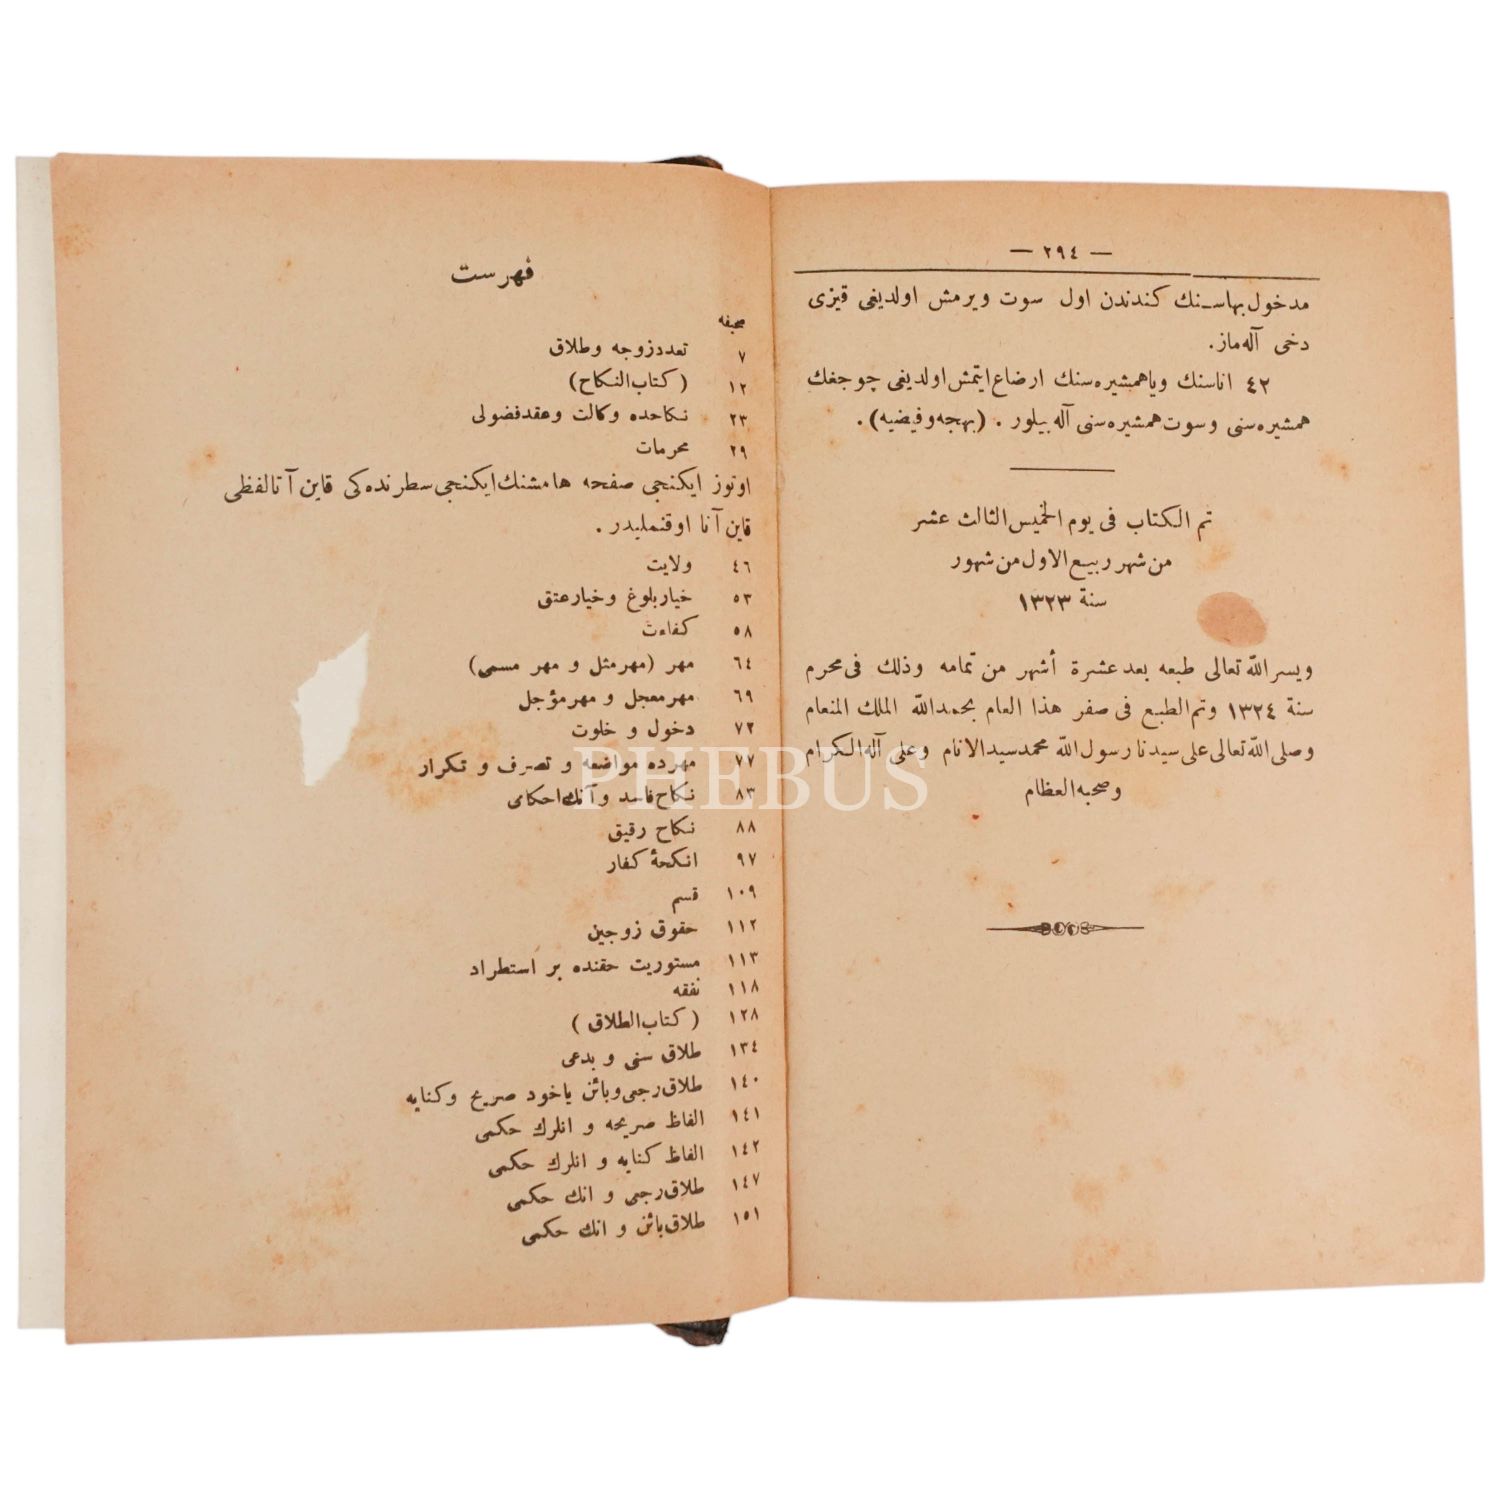 — ٢٩٤ —
مدخول بهاسنك كندندن اول سوت ويرمش اولديغى قيزى
دخى آله‌ماز.
٤٢ اناسنك ويا همشيره‌سنك ارضاع ايتمش اولديغى چوجغك
همشيره‌سنى وسوت همشيره‌سنى آله بيلور . (بهجه وفيضيه) .
تم الكتاب فى يوم الخميس الثالث عشر
من شهر ربيع الاول من شهور
سنة ١٣٢٣
ويسر الله تعالى طبعه بعد عشرة أشهر من تمامه وذلك فى محرم
سنة ١٣٢٤ وتم الطبع فى صفر هذا العام بحمدالله الملك المنعام
وصلى الله تعالى على سيدنا رسول الله محمد سيد الانام وعلى آله الكرام
وصحبه العظام
فهرست
صحيفه
٧ تعدد زوجه وطلاق
١٢ (كتاب النكاح)
٢٣ نكاحده وكالت وعقد فضولى
٢٩ محرمات
اوتوز ايكنجى صفحه هامشنك ايكنجى سطرنده‌كى قاين آتا لفظى
قاين آنا اوقنمليدر .
٤٦ ولايت
٥٣ خيار بلوغ وخيار عتق
٥٨ كفاءت
٦٤ مهر (مهر مثل و مهر مسمى)
٦٩ مهر معجل و مهر مؤجل
٧٢ دخول و خلوت
٧٧ مهرده مواضعه و تصرف و تكرار
٨٣ نكاح فاسد و آنك احكامى
٨٨ نكاح رقيق
٩٧ انكحۀ كفار
١٠٩ قسم
١١٢ حقوق زوجين
١١٣ مستوريت حقنده بر استطراد
١١٨ نفقه
١٢٨ ( كتاب الطلاق )
١٣٤ طلاق سنى و بدعى
١٤٠ طلاق رجعى وبائن ياخود صريح وكنايه
١٤١ الفاظ صريحه و انلرك حكمى
١٤٢ الفاظ كنايه و انلرك حكمى
١٤٧ طلاق رجعى و انك حكمى
١٥١ طلاق بائن و انك حكمى
PHEBUS